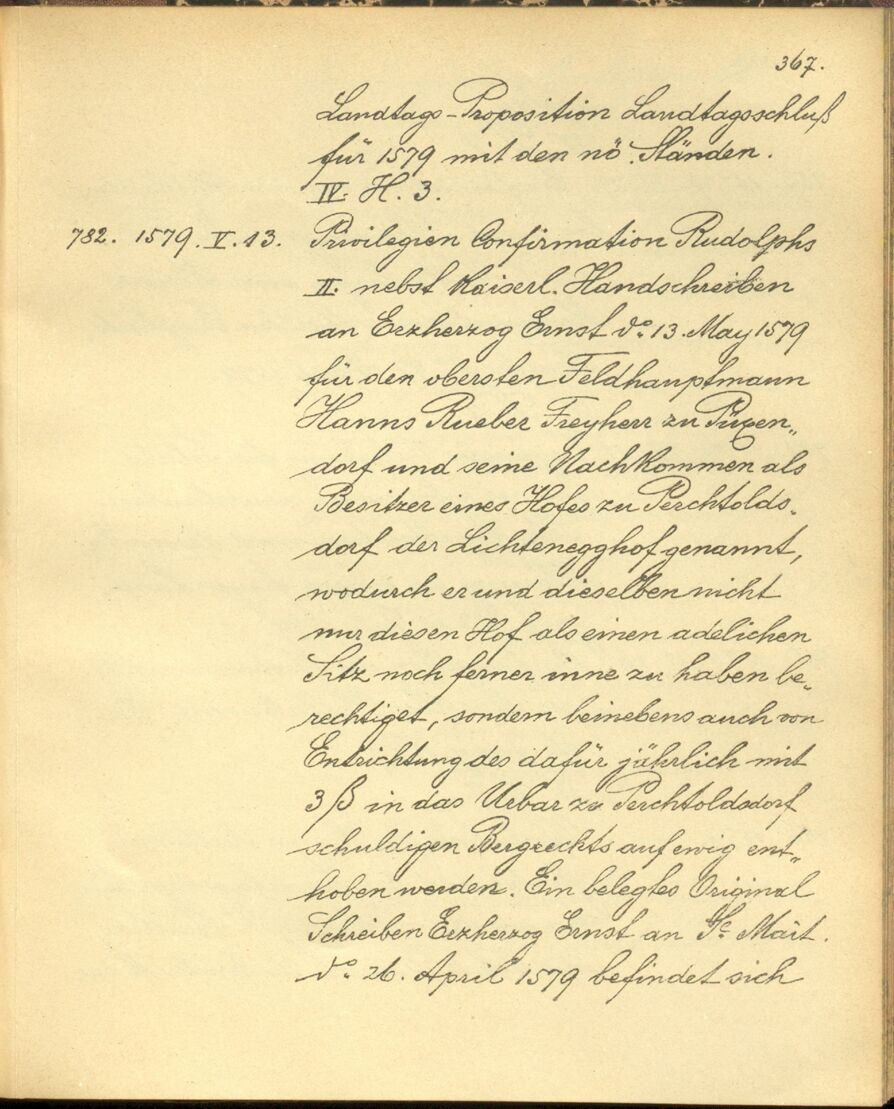 367.
Landtags-Proposition Landtagsschluß
für 1579 mit den nö. Ständen.
IV. H. 3.
782. 1579. V. 13. Privilegien Confirmation Rudolphs
II. nebst Kaiserl. Handschreiben
an Erzherzog Ernst do. 13. May 1579
für den obersten Feldhauptmann
Hanns Rueber Freyherr zu Püxen„
dorf und seine Nachkommen als
Besitzer eines Hofes zu Perchtolds„
dorf der Lichtenegghof genannt,
wodurch er und dieselben nicht
nur diesen Hof als einen adelichen
Sitz noch ferner inne zu haben be„
rechtiget, sondern beinebens auch von
Entrichtung des dafür jährlich mit
3 ß in das Urbar zu Perchtoldsdorf
schuldigen Bergrechts auf ewig ent„
hoben werden. Ein belegtes Original
Schreiben Erzherzog Ernst an Se Mäit.
do. 26. April 1579 befindet sich